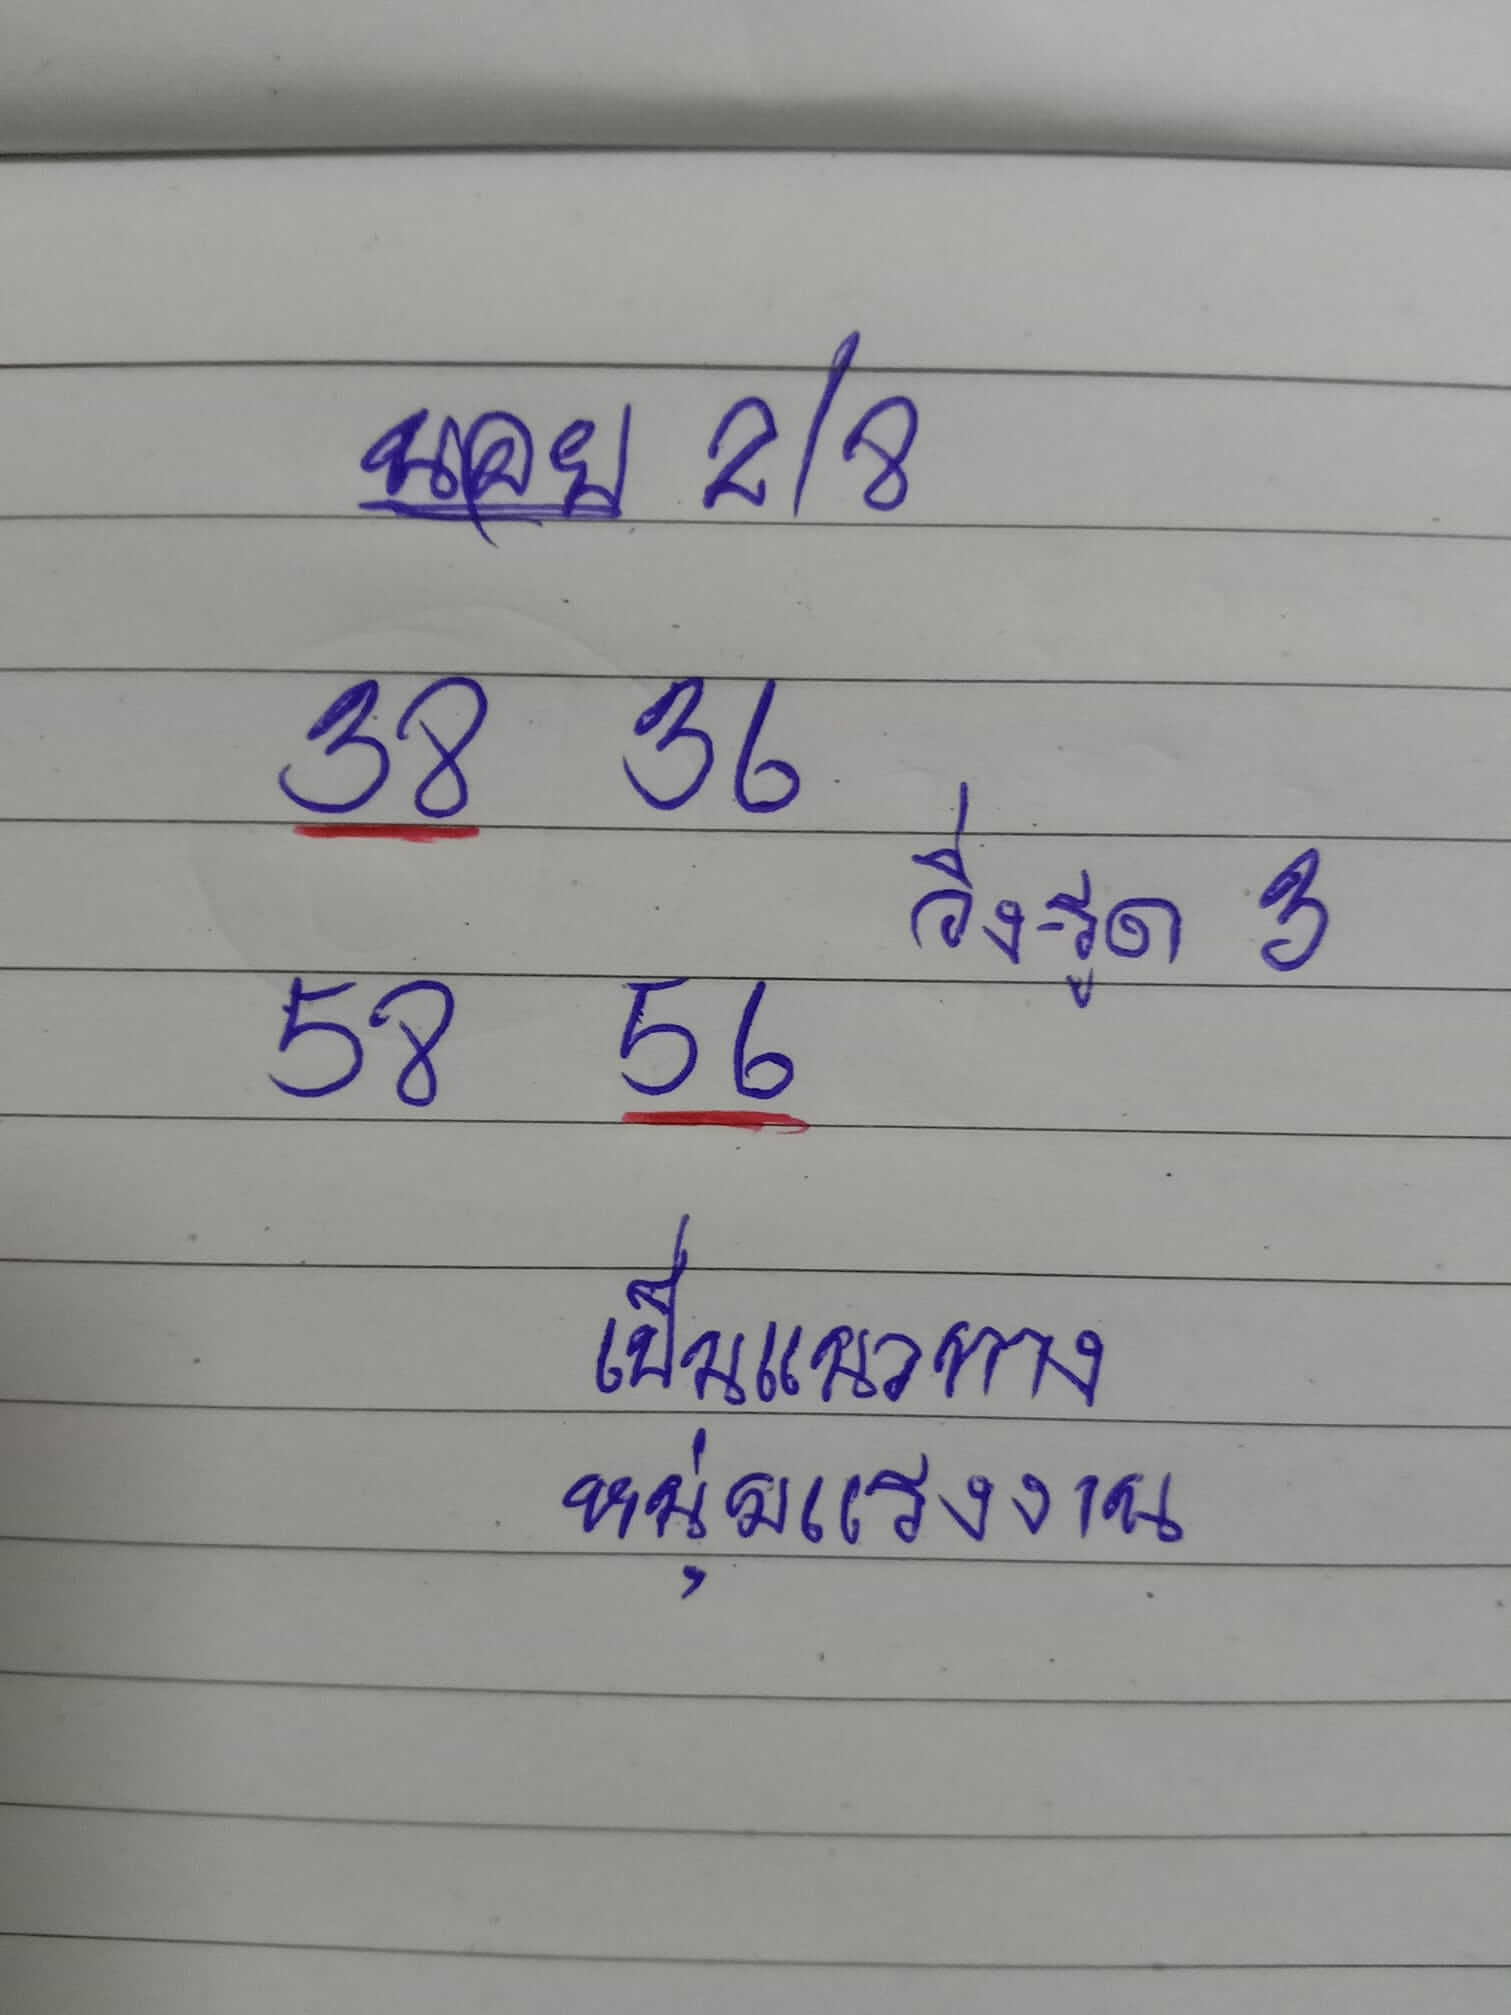 นอย 2/8
38 36
วิ่ง-รูด 3
58 56
เป็นแนวทาง
หนุ่มแรงงาน